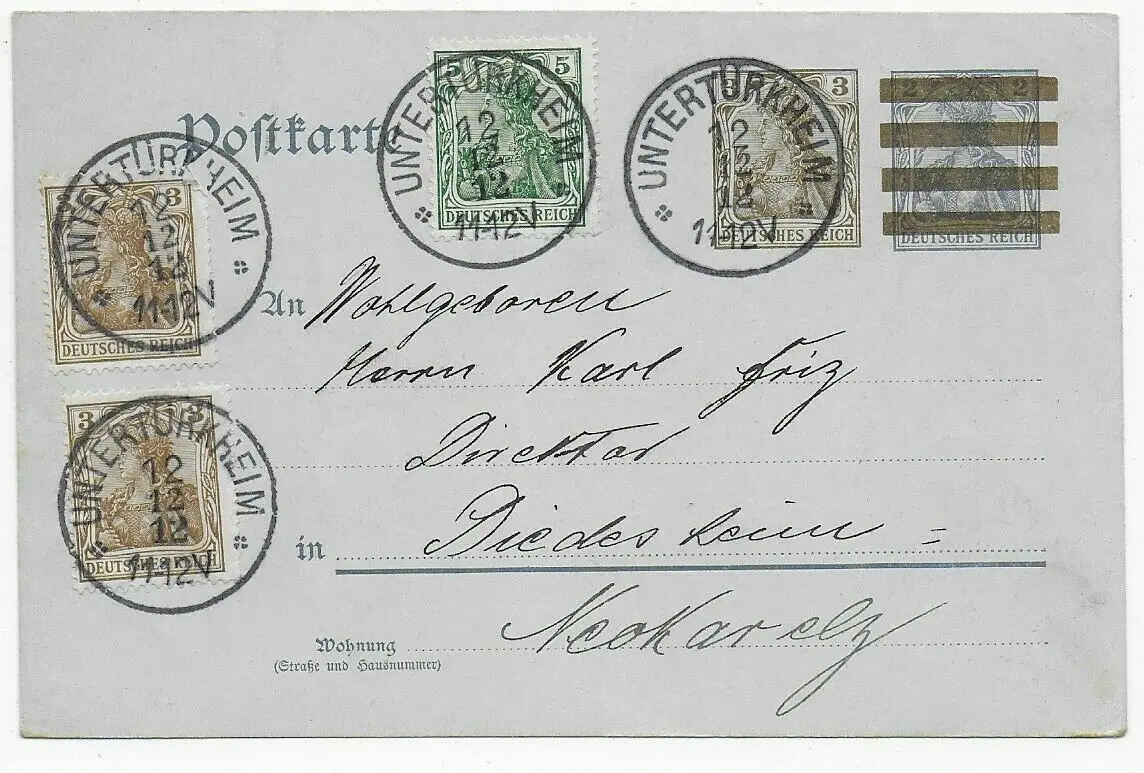 Postkarte
5 5
DEUTSCHES REICH
UNTERTÜRKHEIM
12
12
12
11-12V
3 3
DEUTSCHES REICH
UNTERTÜRKHEIM
12
12
12
11-12V
2 2 2
DEUTSCHES REICH
3
DEUTSCHES REICH
UNTERTÜRKHEIM
12
12
12
11-12V
3 3
DEUTSCHES REICH
UNTERTÜRKHEIM
12
12
12
11-12V
An Wohlgeboren
Herrn Karl Friz
Direktor
in Diedesheim =
Neckarelz
Wohnung
(Straße und Hausnummer)